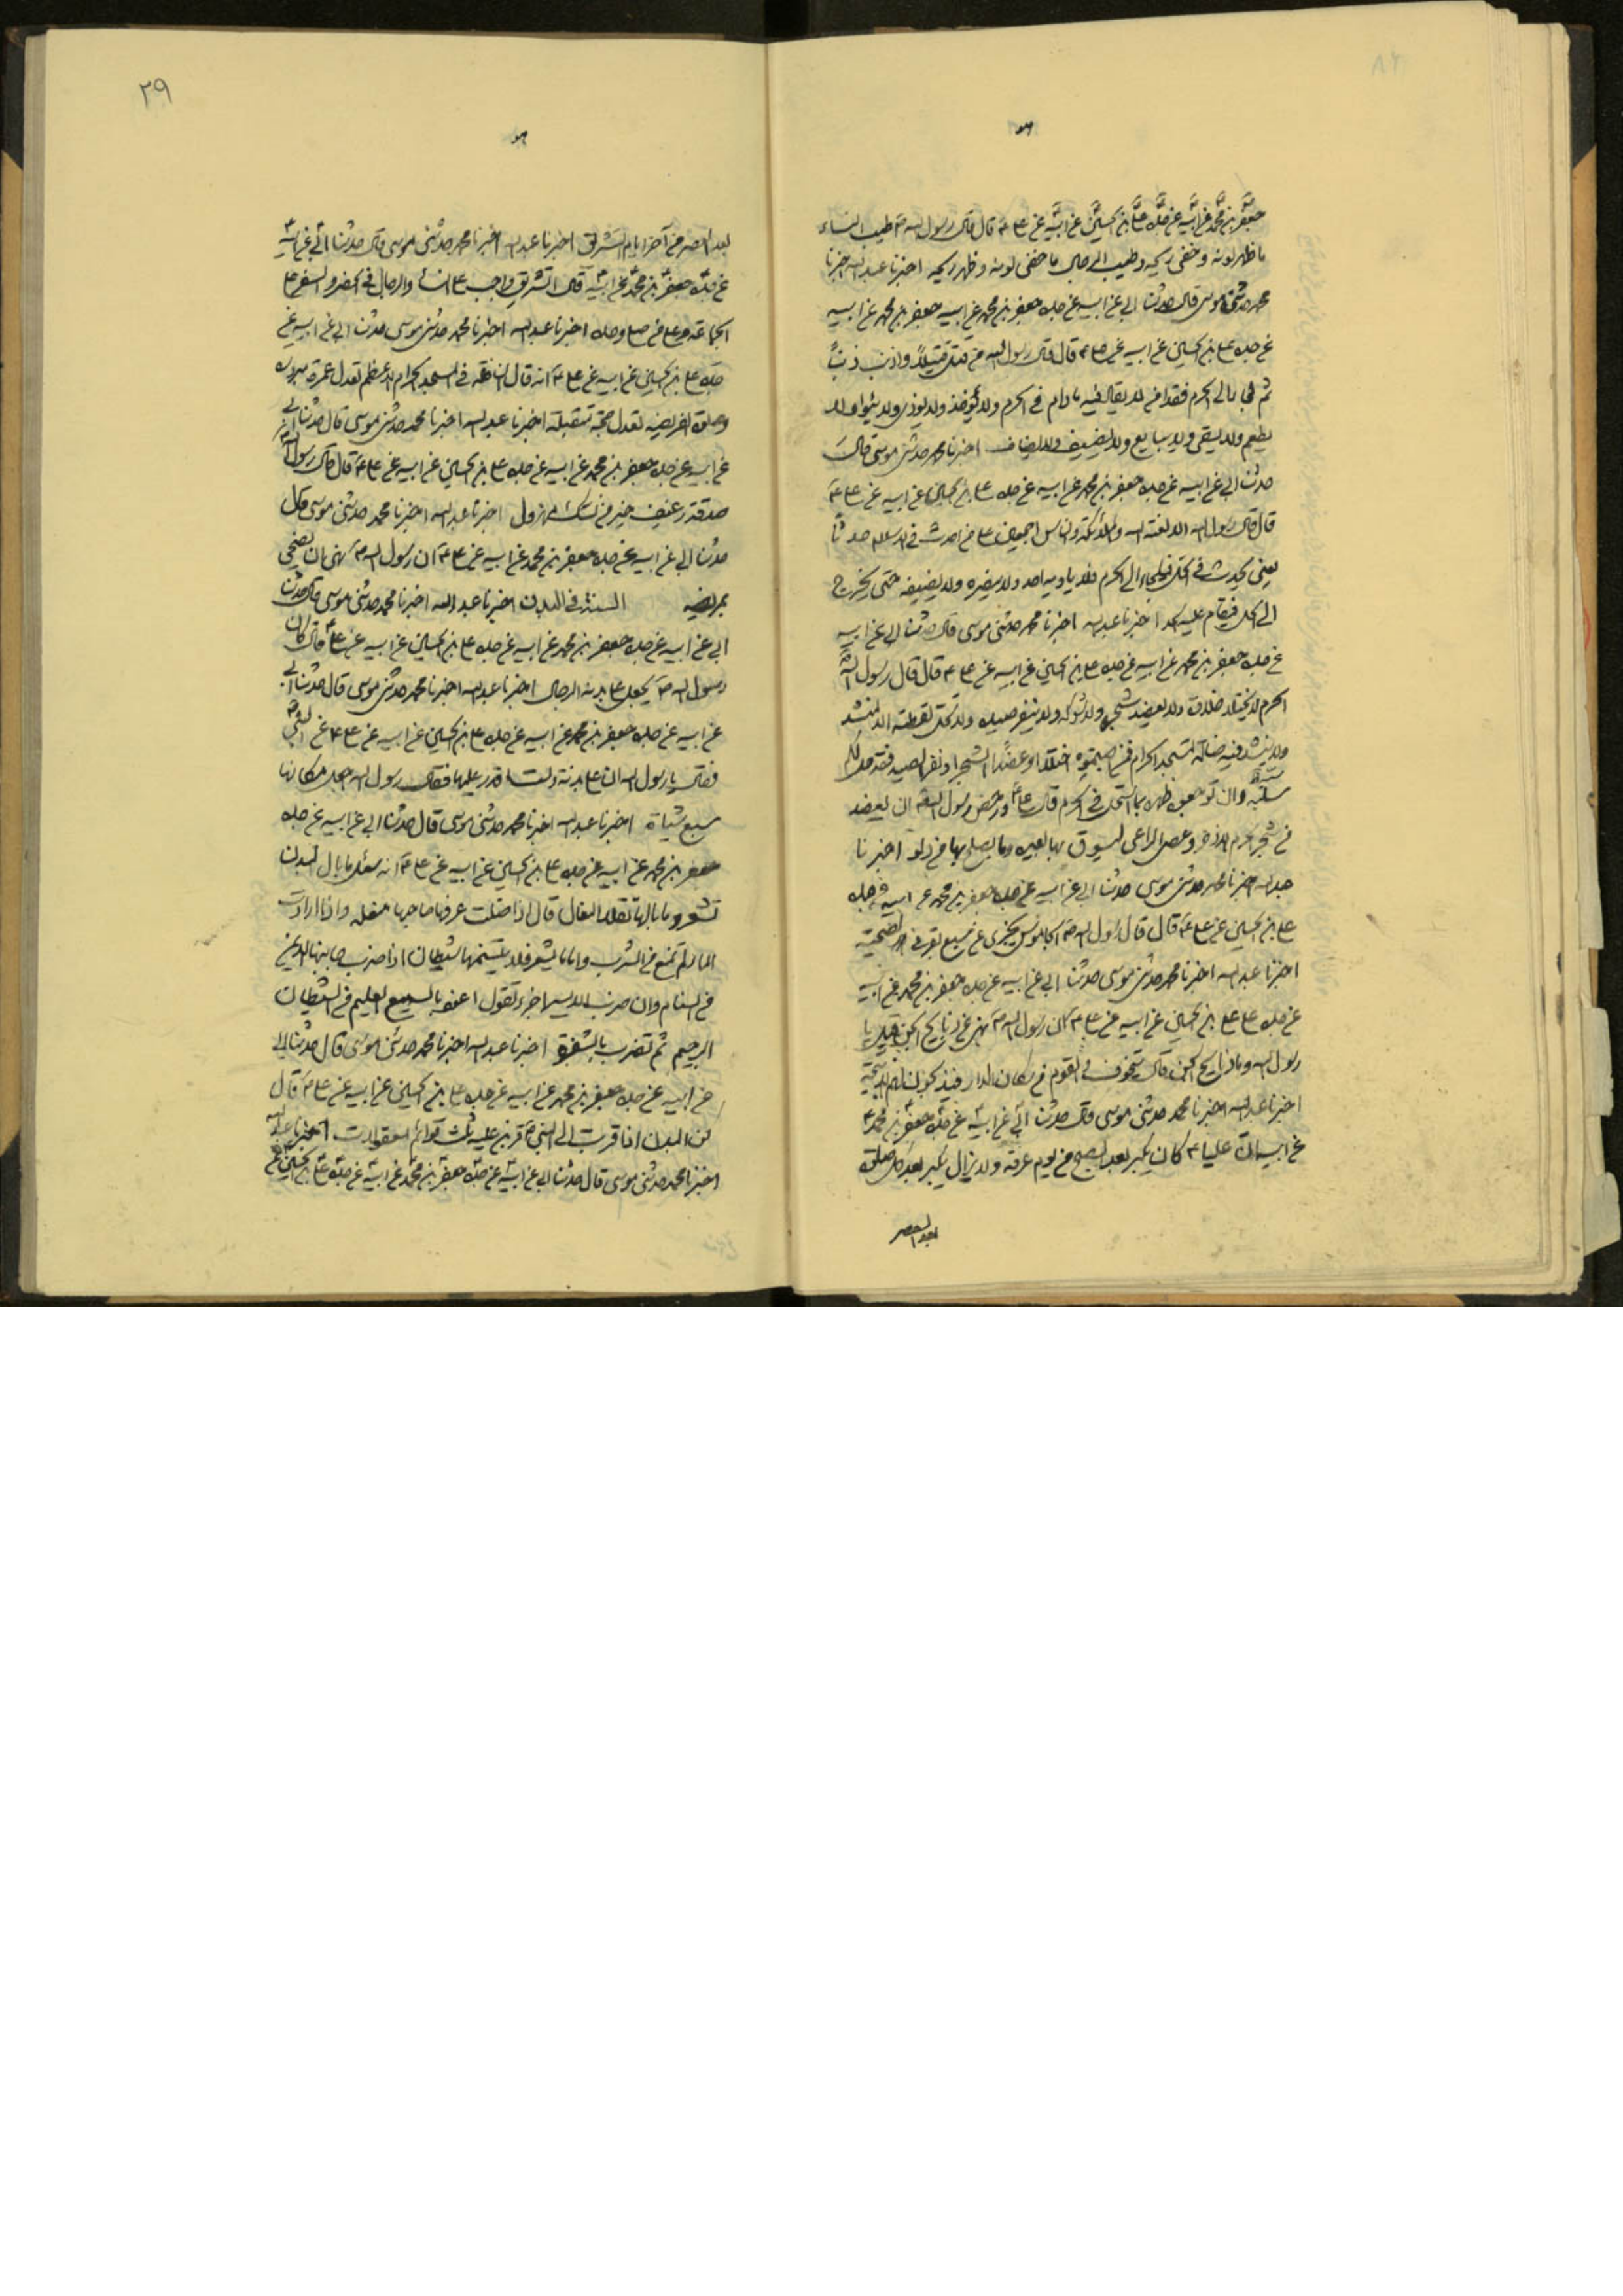 جعفر بن محمد عن ابيه عن جده علي بن الحسين عن ابيه عن علي ع قال قال رسول الله ص طيب النساء
ما ظهر لونه وخفى ريحه وطيب الرجال ما خفى لونه وظهر ريحه اخبرنا عبد الله اخبرنا
محمد حدثنى موسى قال حدثنا ابي عن ابيه عن جده جعفر بن محمد عن ابيه جعفر بن محمد عن ابيه
عن جده علي بن الحسين عن ابيه عن علي ع قال قال رسول الله من قتل قتيلاً واذنب ذنباً
ثم لجا الى الحرم فقد امن لا يقاد فيه ما دام في الحرم ولا يؤخذ ولا يوذى ولا يئوا ولا
يطعم ولا يسقى ولا يبايع ولا يضيف ولا يضاف اخبرنا محمد حدثنى موسى قال
حدثنا ابي عن ابيه عن جده جعفر بن محمد عن ابيه عن جده علي بن الحسين عن ابيه عن علي ع
قال قال رسول الله الا لعنة الله والملائكة والناس اجمعين على من احدث في الاسلام حدثاً
يعنى يحدث في الحل فيلجاء الى الحرم فلا ياويه احد ولا ينصره ولا يضيفه حتى يخرج
الى الحل فيقام عليه الحد اخبرنا عبد الله اخبرنا محمد حدثنى موسى قال حدثنا ابي عن ابيه
عن جده جعفر بن محمد عن ابيه عن جده علي بن الحسين عن ابيه عن علي ع قال قال رسول الله
الحرم لا يختلا خلاه ولا يعضد شجره ولا شوكه ولا ينفر صيده ولا تحل لقطته الا لمنشد
ولا ينشد فيه ضالة المسجد الحرام فمن اصبتموه اختلا او عضد الشجر او نفر الصيد فقد حل لكم
سلبه وان توجعوا ظهره بما استحل في الحرم قال علي ع ورخص رسول الله ان يعضد
من شجر الحرم الاذخر وعصى الراعى ليسوق بها بعيره وما يصلح بها من دلو اخبرنا
عبد الله اخبرنا محمد حدثنى موسى حدثنا ابي عن ابيه عن جده جعفر بن محمد عن ابيه عن جده
علي بن الحسين عن علي ع قال قال رسول الله ص الجاموس يجزى عن سبع نفر في الاضحية
اخبرنا عبد الله اخبرنا محمد حدثنى موسى حدثنا ابي عن ابيه عن جده جعفر بن محمد عن ابيه
عن جده علي بن الحسين عن ابيه عن علي ع ان رسول الله ص نهى عن ذبايح الجن قيل يا
رسول الله وما ذبايح الجن قال يتخوف القوم من سكان الدار فيذبحون لهم الذبيحة
اخبرنا عبد الله اخبرنا محمد حدثنى موسى قال حدثنا ابي عن ابيه عن جده جعفر بن محمد
عن ابيه ان عليا ع كان يكبر بعد الصبح من يوم عرفة ولا يزال يكبر بعد كل صلوة
بعد العصر
٢٩
بعد العصر من آخر ايام التشريق اخبرنا عبد الله اخبرنا محمد حدثنى موسى قال حدثنا ابي عن ابيه
عن جده جعفر بن محمد عن ابيه قال التشريق واجب على النساء والرجال في الحضر والسفر على
الجماعة وعلى من صلى وحده اخبرنا عبد الله اخبرنا محمد حدثنى موسى حدثنا ابي عن ابيه عن
جده علي بن الحسين عن ابيه عن علي ع انه قال النافلة في المسجد الحرام الاعظم تعدل عمرة مبرورة
وصلوة الفريضه تعدل حجة متقبلة اخبرنا عبد الله اخبرنا محمد حدثنى موسى قال حدثنا ابي
عن ابيه عن جده جعفر بن محمد عن ابيه عن جده علي بن الحسين عن ابيه عن علي ع قال قال رسول الله
صدقة رغيف خير من نسك مهزول اخبرنا عبد الله اخبرنا محمد حدثنى موسى قال
حدثنا ابي عن ابيه عن جده جعفر بن محمد عن ابيه عن علي ع ان رسول الله ص نهى ان يضحى
بمريضه السنة في البدن اخبرنا عبد الله اخبرنا محمد حدثنى موسى قال حدثنا
ابي عن ابيه عن جده جعفر بن محمد عن ابيه عن جده علي بن الحسين عن ابيه عن علي ع قال كان
رسول الله ص يجعل على بدنه الرجال اخبرنا عبد الله اخبرنا محمد حدثنى موسى قال حدثنا ابي
عن ابيه عن جده جعفر بن محمد عن ابيه عن جده علي بن الحسين عن ابيه عن علي ع عن النبي ص
فقال يا رسول الله ان علي بدنة ولست اقدر عليها فقال رسول الله اجعل مكانها
سبع شياة اخبرنا عبد الله اخبرنا محمد حدثنى موسى قال حدثنا ابي عن ابيه عن جده
جعفر بن محمد عن ابيه عن جده علي بن الحسين عن ابيه عن علي ع انه سئل ما بال البدن
تشعر وما بالها تقلد النعال قال اذا ضلت عرفها صاحبها بنعله واذا ارادت
الماء لم تمنع من الشرب واما ما يشعر فلا يتسنمها الشيطان اذا ضرب جانبها الايمن
من السنام وان ضرب الايسر اجزء تقول اعوذ بالسميع العليم من الشيطان
الرجيم ثم تضرب بالشفرة اخبرنا عبد الله اخبرنا محمد حدثنى موسى قال حدثنا ابي
عن ابيه عن جده جعفر بن محمد عن ابيه عن جده علي بن الحسين عن ابيه عن علي ع قال
ان البدن اذا قربت الى النبي ص قربن عليه ثلث قوائم معقولات اخبرنا عبد الله
اخبرنا محمد حدثنى موسى قال حدثنا ابي عن ابيه عن جده جعفر بن محمد عن ابيه عن جده علي بن الحسين عن